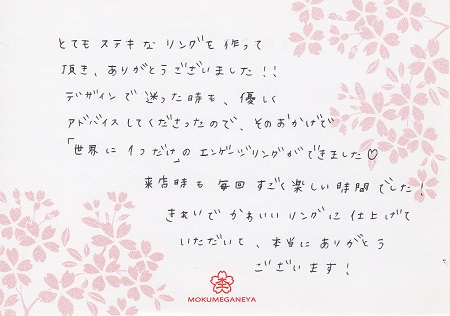 とてもステキなリングを作って
頂き、ありがとうございました!!
デザインで迷った時も、優しく
アドバイスしてくださったので、そのおかげで
「世界に1つだけ」のエンゲージリングができました♡
来店時も毎回すごく楽しい時間でした!
きれいでかわいいリングに仕上げて
いただいて、本当にありがとう
ございます!
MOKUMEGANEYA